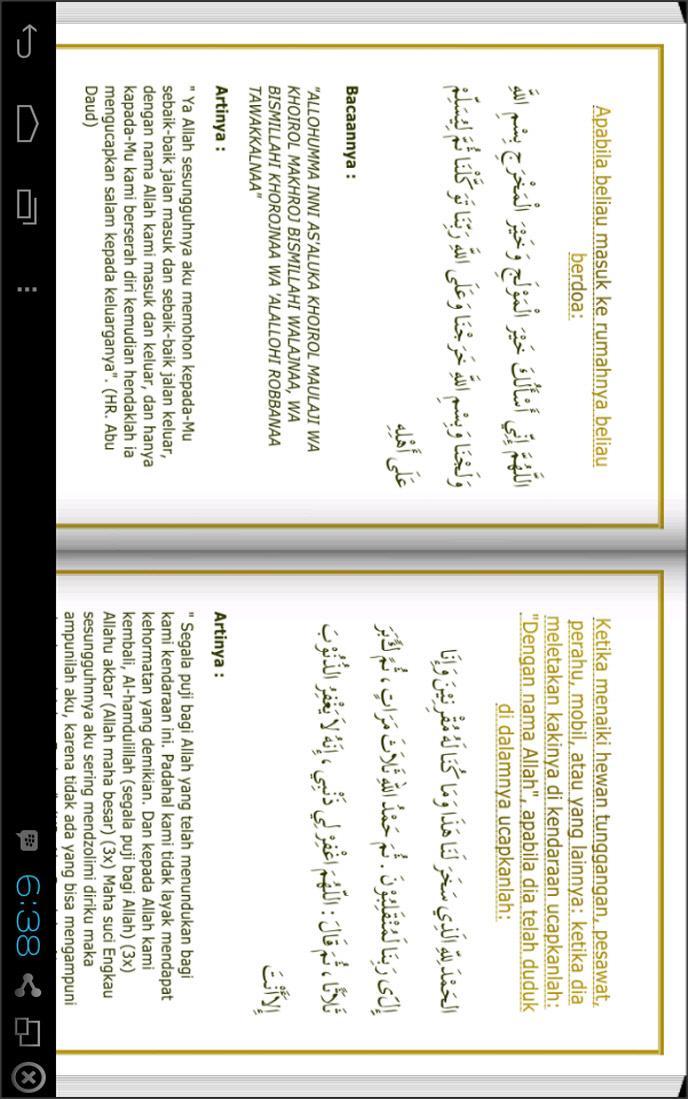 Apabila beliau masuk ke rumahnya beliau
berdoa:
اللَّهُمَّ إِنِّي أَسْأَلُكَ خَيْرَ الْمَوْلَجِ وَخَيْرَ الْمَخْرَجِ بِسْمِ اللَّهِ
وَلَجْنَا وَبِسْمِ اللَّهِ خَرَجْنَا وَعَلَى اللَّهِ رَبِّنَا تَوَكَّلْنَا ثُمَّ لِيُسَلِّمْ
عَلَى أَهْلِهِ
Bacaannya :
"ALLOHUMMA INNI AS'ALUKA KHOIROL MAULAJI WA
KHOIROL MAKHROJ BISMILLAHI WALAJNAA, WA
BISMILLAHI KHOROJNAA WA 'ALALLOHI ROBBANAA
TAWAKKALNAA"
Artinya :
" Ya Allah sesungguhnya aku memohon kepada-Mu
sebaik-baik jalan masuk dan sebaik-baik jalan keluar,
dengan nama Allah kami masuk dan keluar, dan hanya
kapada-Mu kami berserah diri kemudian hendaklah ia
mengucapkan salam kepada keluarganya". (HR. Abu
Daud)
Ketika menaiki hewan tunggangan, pesawat,
perahu, mobil, atau yang lainnya: ketika dia
meletakan kakinya di kendaraan ucapkanlah:
"Dengan nama Allah", apabila dia telah duduk
di dalamnya ucapkanlah:
الحَمْدُ لِلَّهِ الَّذِي سَخَّرَ لَنَا هَذَا وَمَا كُنَّا لَهُ مُقْرِنِيْنَ وَإِنَّا
إِلَى رَبِّنَا لَمُنْقَلِبُوْنَ . ثُمَّ حَمْدُ اللهِ ثَلاَثَ مَرَاتٍ ، ثُمَّ كَبَّرَ
ثَلاَثًا ، ثُمَّ قَالَ : اَللَّهُمَّ اغْفِرْ لِي ذَنْبِي ، إِنَّهُ لاَ يَغْفِرُ الذُّنُوْبَ
إِلاَّ أَنْتَ
Artinya :
" Segala puji bagi Allah yang telah menundukan bagi
kami kendaraan ini. Padahal kami tidak layak mendapat
kehormatan yang demikian. Dan kepada Allah kami
kembali, Al-hamdulillah (segala puji bagi Allah) (3x)
Allahu akbar (Allah maha besar) (3x) Maha suci Engkau
sesungguhnnya aku sering mendzolimi diriku maka
ampunilah aku, karena tidak ada yang bisa mengampuni
6:38